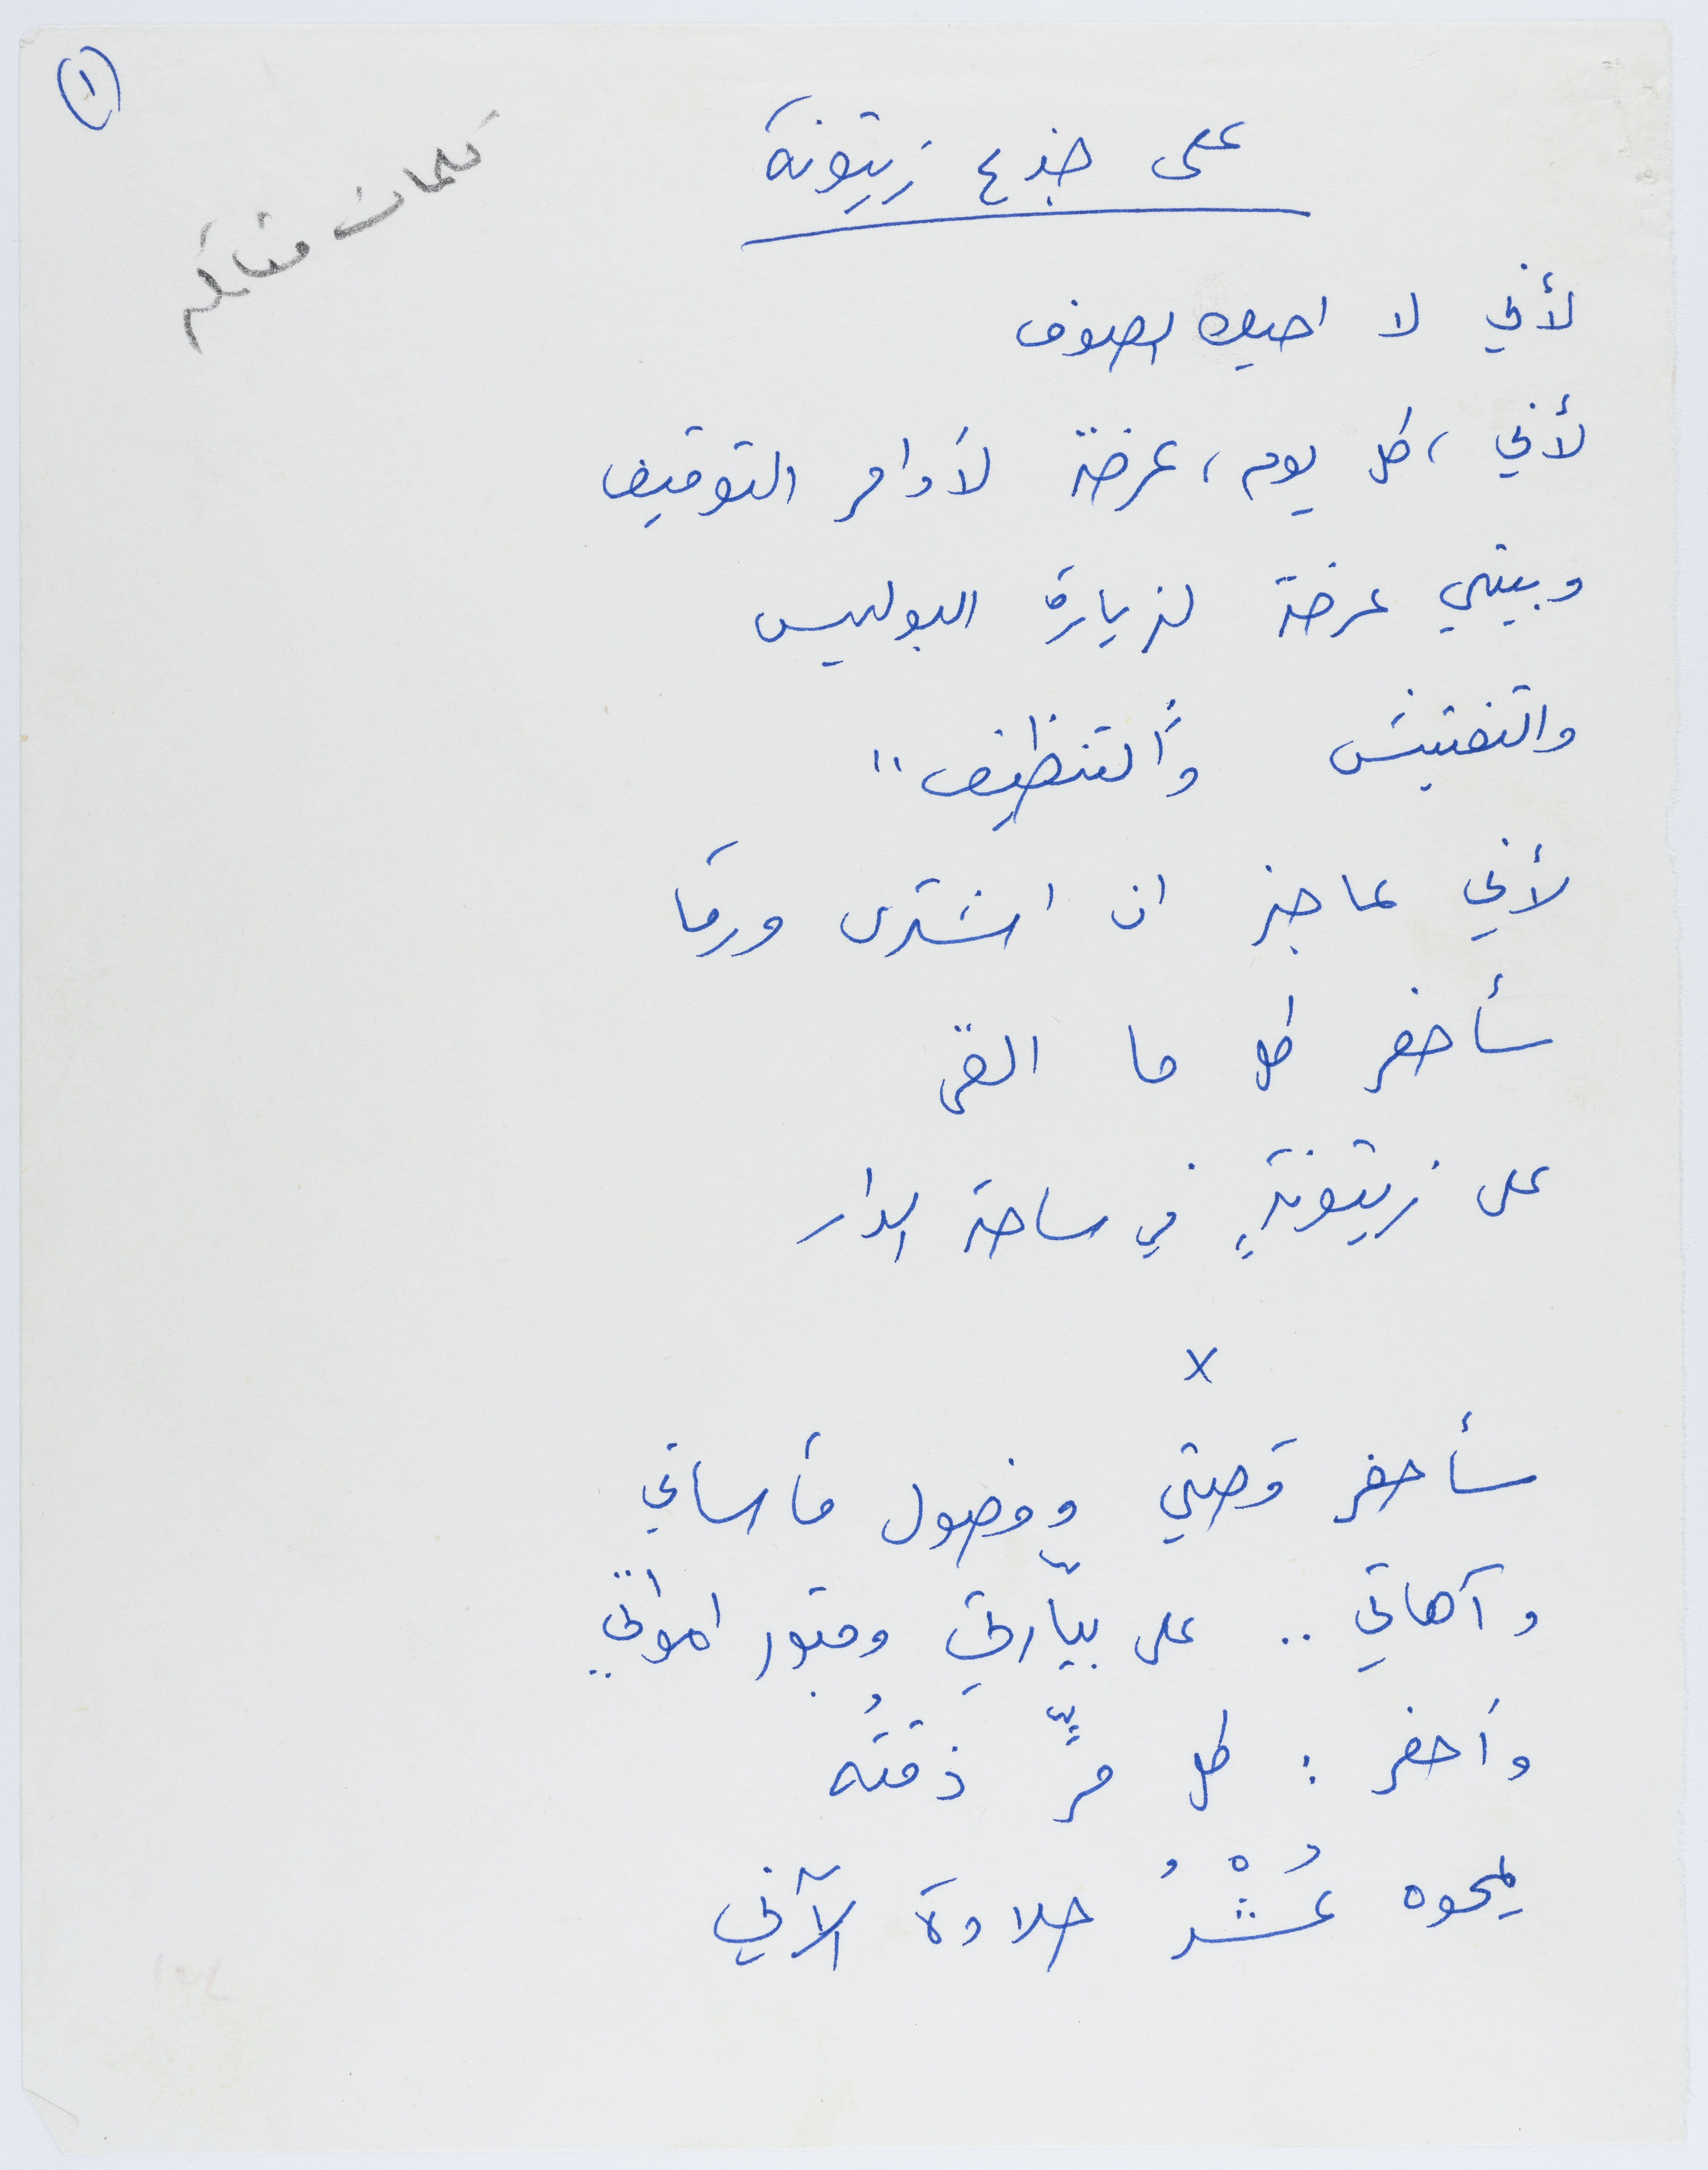 ١
كلمات مقاتلة
على جذع زيتونة
لأني لا احيك الصوف
لأني ، كل يوم ، عرضة لأوامر التوقيف
وبيتي عرضة لزيارة البوليس
والتفتيش و"التنظيف"
لأني عاجز ان اشتري ورقا
سأحفر كل ما القى
على زيتونةٍ في ساحة الدار
x
سأحفر قصتي وفصول مأساتي
وآهاتي .. على بيّارتي وقبور امواتي
وأحفر : كل مرٍّ ذقتُه
يمحوه عُشْرُ حلاوة الآتي